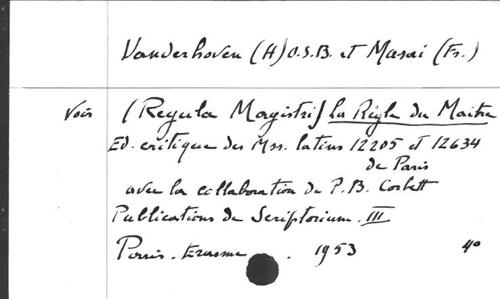 Vanderhoven (H) O.S.B. et Masai (Fr.)
Voir (Regula Magistri) La Règle du Maitre
Ed. critique des Mss. latins 12205 et 12634
de Paris
avec la collaboration de P.B. Corbett
Publications de Scriptorium III
Paris. Erasme. 1953 4°